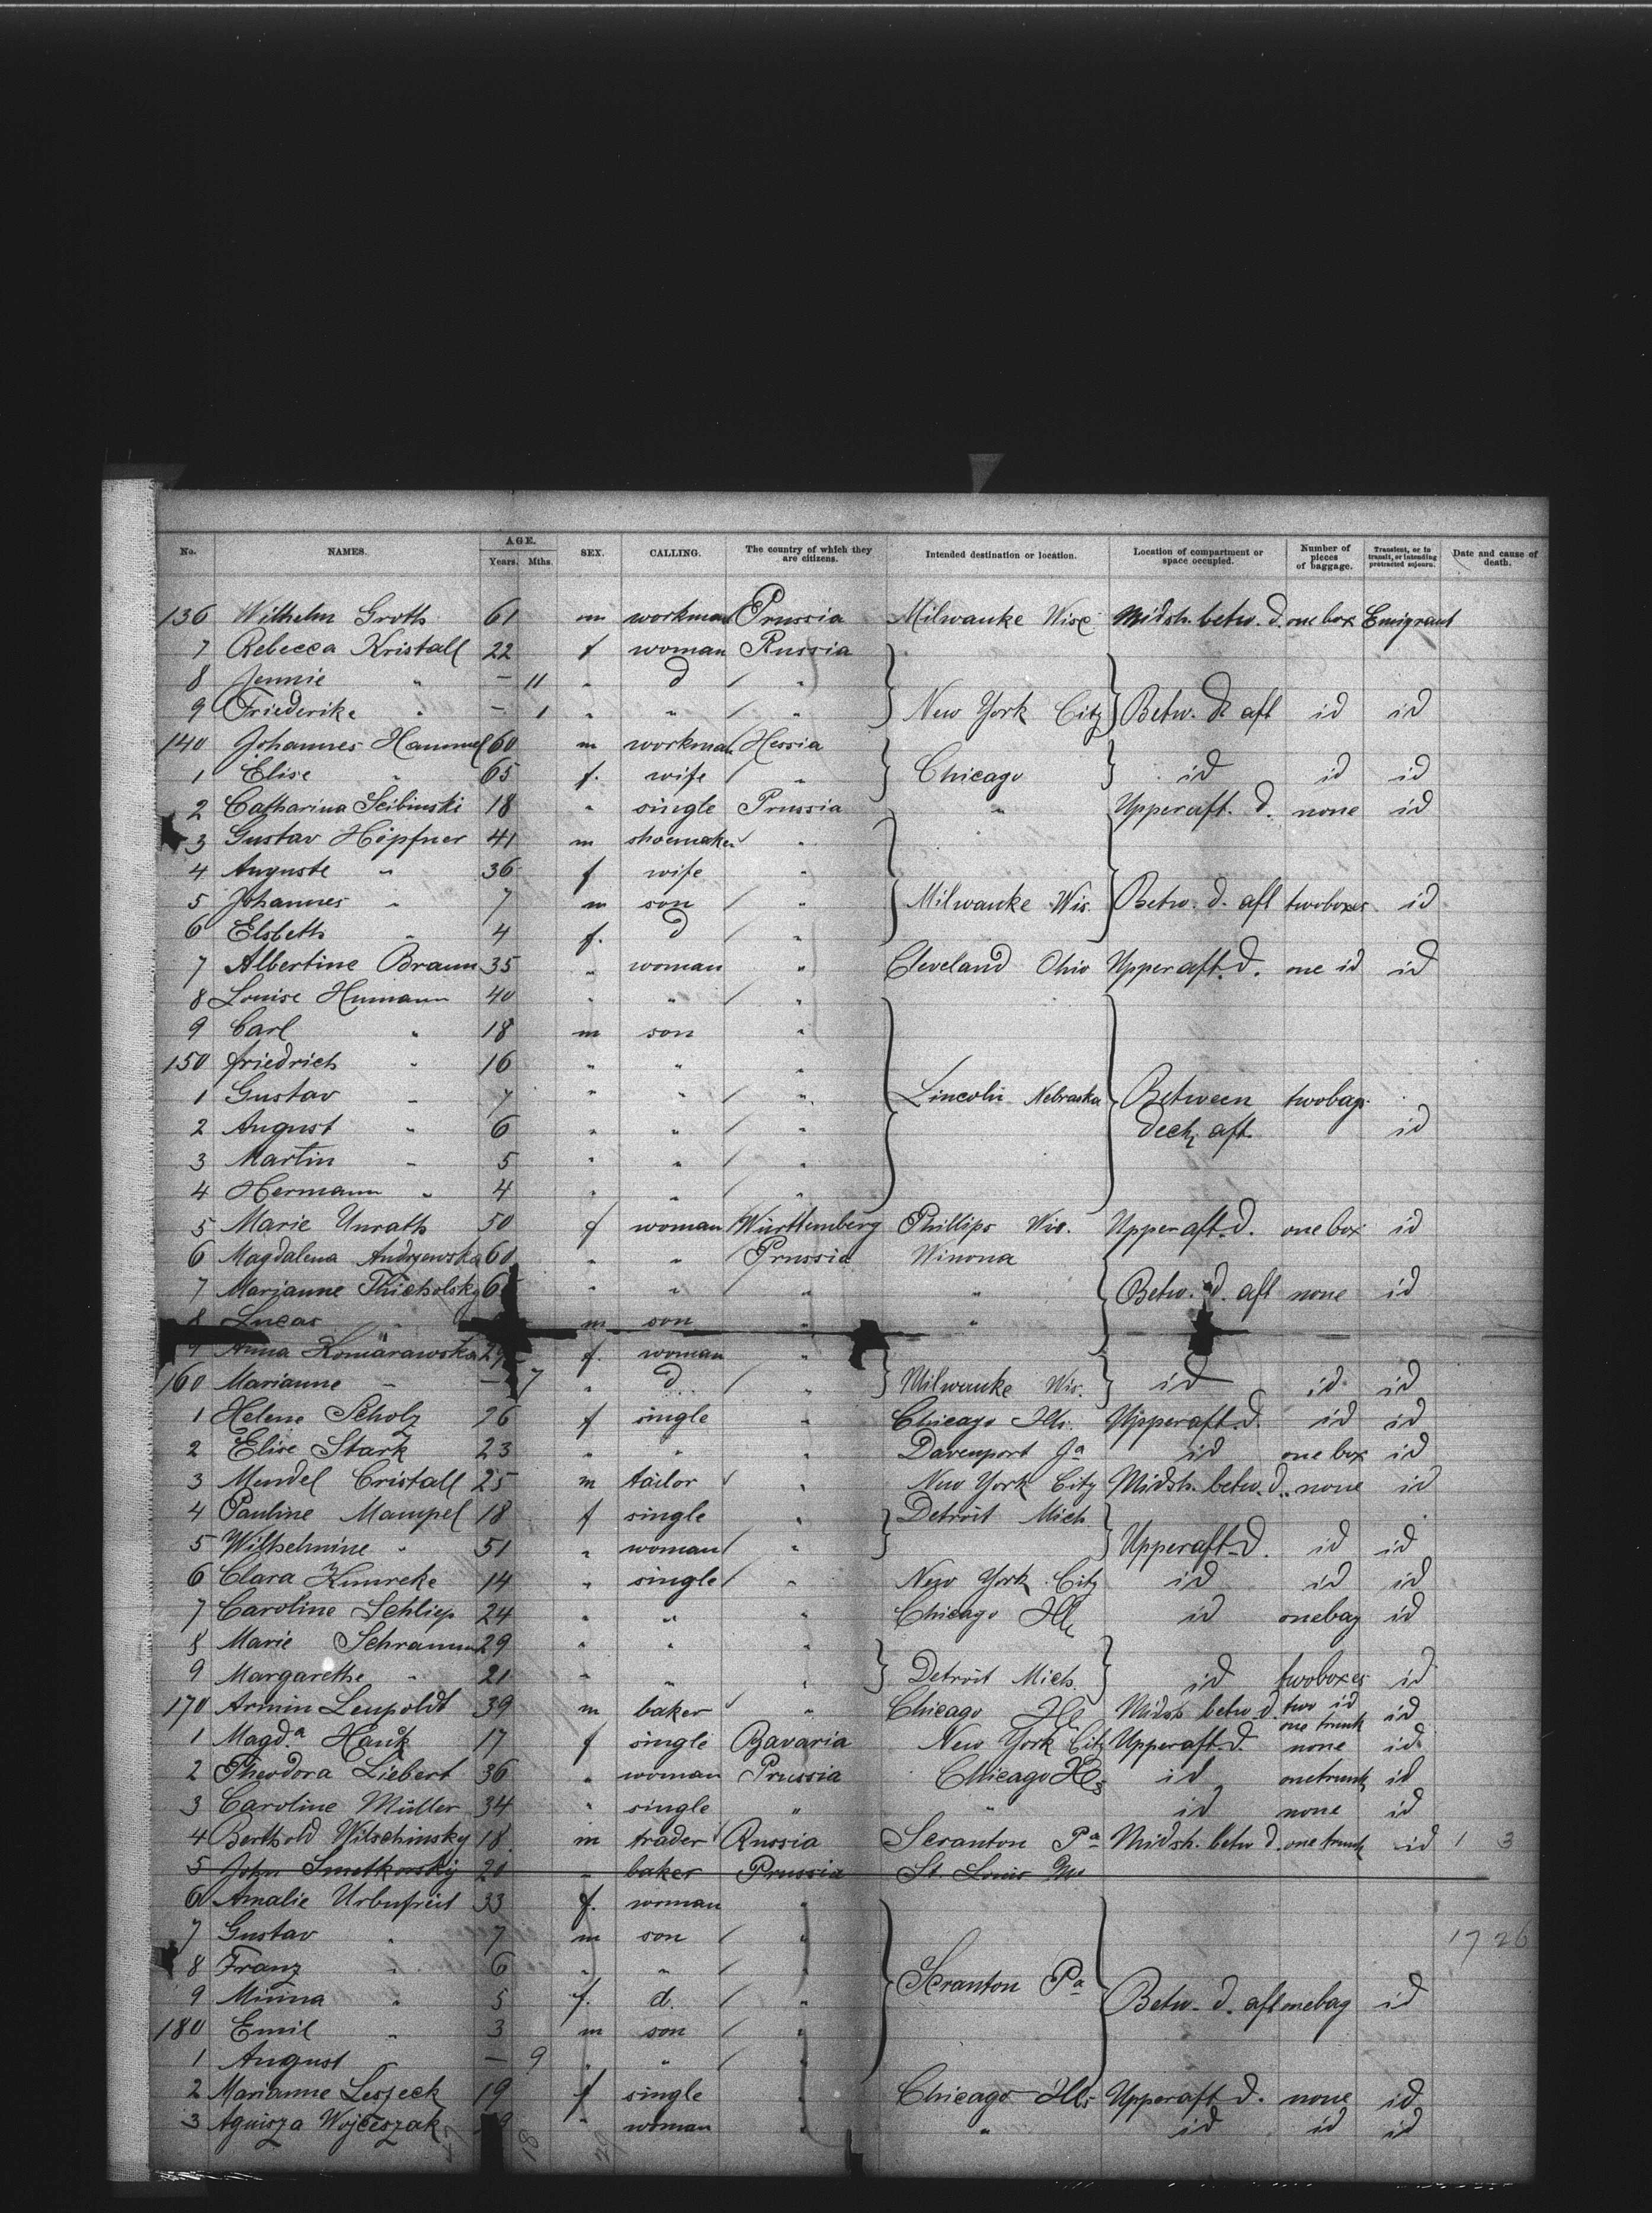 No. NAMES. AGE. Years. Mths. SEX. CALLING. The country of which they are citizens. Intended destination or location. Location of compartment or space occupied. Number of pieces of baggage. Transient, or in transit, or intending protracted sojourn. Date and cause of death.
136 Wilhelm Groth 61 m workman Prussia Milwauke Wisc Midsh. betw. d. one box Emigrant
7 Rebecca Kristall 22 f woman Russia
8 Jennie " — 11 " d "
9 Friederike " — 1 " " " New York City Betw. d. aft id id
140 Johannes Hammel 60 m workman Hessia
1 Elise " 65 f. wife " Chicago id id id
2 Catharina Scibinski 18 " single Prussia " Upper aft. d. none id
3 Gustav Höpfner 41 m shoemaker "
4 Auguste " 36 f wife "
5 Johannes " 7 m son " Milwauke Wis. Betw. d. aft two boxes id
6 Elsbeth " 4 f. d "
7 Albertine Braun 35 " woman " Cleveland Ohio Upper aft. d. one id id
8 Louise Humann 40 " " "
9 Carl " 18 m son "
150 Friedrich " 16 " " "
1 Gustav " 7 " " " Lincoln Nebraska Between two bags
2 August " 6 " " " deck aft. id
3 Martin " 5 " " "
4 Hermann " 4 " " "
5 Marie Unrath 50 f woman Württemberg Phillips Wis. Upper aft. d. one box id
6 Magdalena Andrzewska 60 " " Prussia Winona
7 Marianne Thicholsky 6 " " " " Betw. d. aft none id
8 Lucas " m son " "
9 Anna Komarawska 29 f. woman "
160 Marianne " — 7 " d " Milwauke Wis. id id id
1 Helene Scholz 26 f single " Chicago Ills. Upper aft. d. id id
2 Elise Stark 23 " " " Davenport Ja id one box id
3 Mendel Cristall 25 m tailor " New York City Midsh. betw. d. none id
4 Pauline Mampel 18 f single " Detroit Mich
5 Wilhelmine " 51 " woman " Upper aft. d. id id
6 Clara Kumreke 14 " single " New York City id id id
7 Caroline Schliep 24 " " " Chicago Ills id one bag id
8 Marie Schramm 29 " " "
9 Margarethe " 21 " " " Detroit Mich. id two boxes id
170 Armin Leupoldt 39 m baker " Chicago Ills Midsh betw. d. two id one trunk id
1 Magd.a Hauk 17 f single Bavaria New York City Upper aft. d. none id
2 Theodora Liebert 36 " woman Prussia Chicago Ills id one trunk id
3 Caroline Müller 34 " single " " id none id
4 Berthold Wilschinsky 18 m trader Russia Scranton Pa Midsh. betw d. one trunk id 1 3
5 John Smetkowsky 20 " baker Prussia St. Louis Mo
6 Amalie Urbufreit 33 f. woman "
7 Gustav " 7 m son " 17 26
8 Franz " 6 " " " Scranton Pa
9 Minna " 5 f. d. " Betw. d. aft one bag id
180 Emil " 3 m son "
1 August " — 9 " " "
2 Marianne Leszeck 19 f single " Chicago Ills Upper aft d. none id
3 Agnisza Wojceszak 9 " woman " " id id id